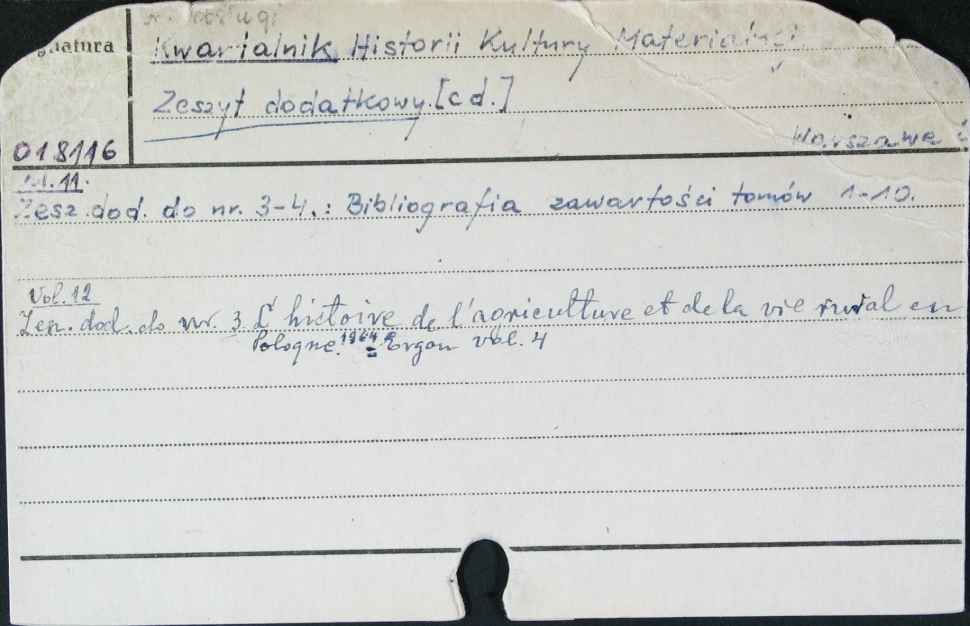 Kwartalnik Historii Kultury Materialnej
Zeszyt dodatkowy [cd.]
Warszawa
018116
Vol. 11.
Zesz. dod. do nr. 3-4.: Bibliografia zawartości tomów 1-10.
Vol. 12
Zesz. dod. do nr. 3 L'histoire de l'agriculture et de la vie rural en
Pologne. 1964 = Ergon vol. 4